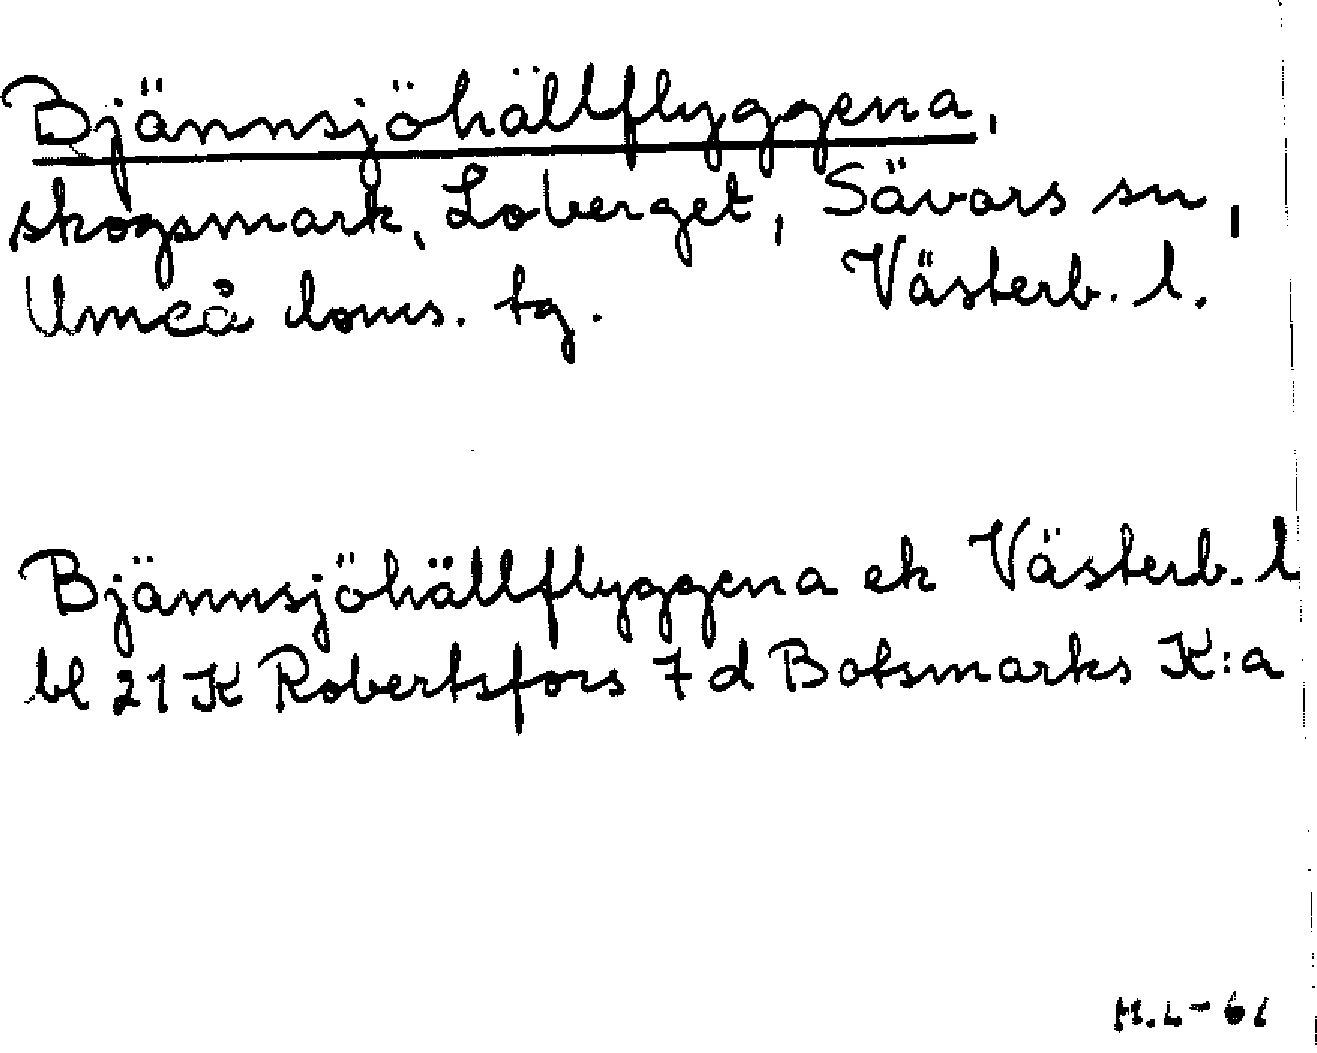 Bjännsjöhällflyggena,
skogsmark, Loberget, Sävars sn,
Umeå doms. tg. Västerb. l.
Bjännsjöhällflyggena ek Västerb. l
bl 21 K Robertsfors 7 d Botsmarks K:a